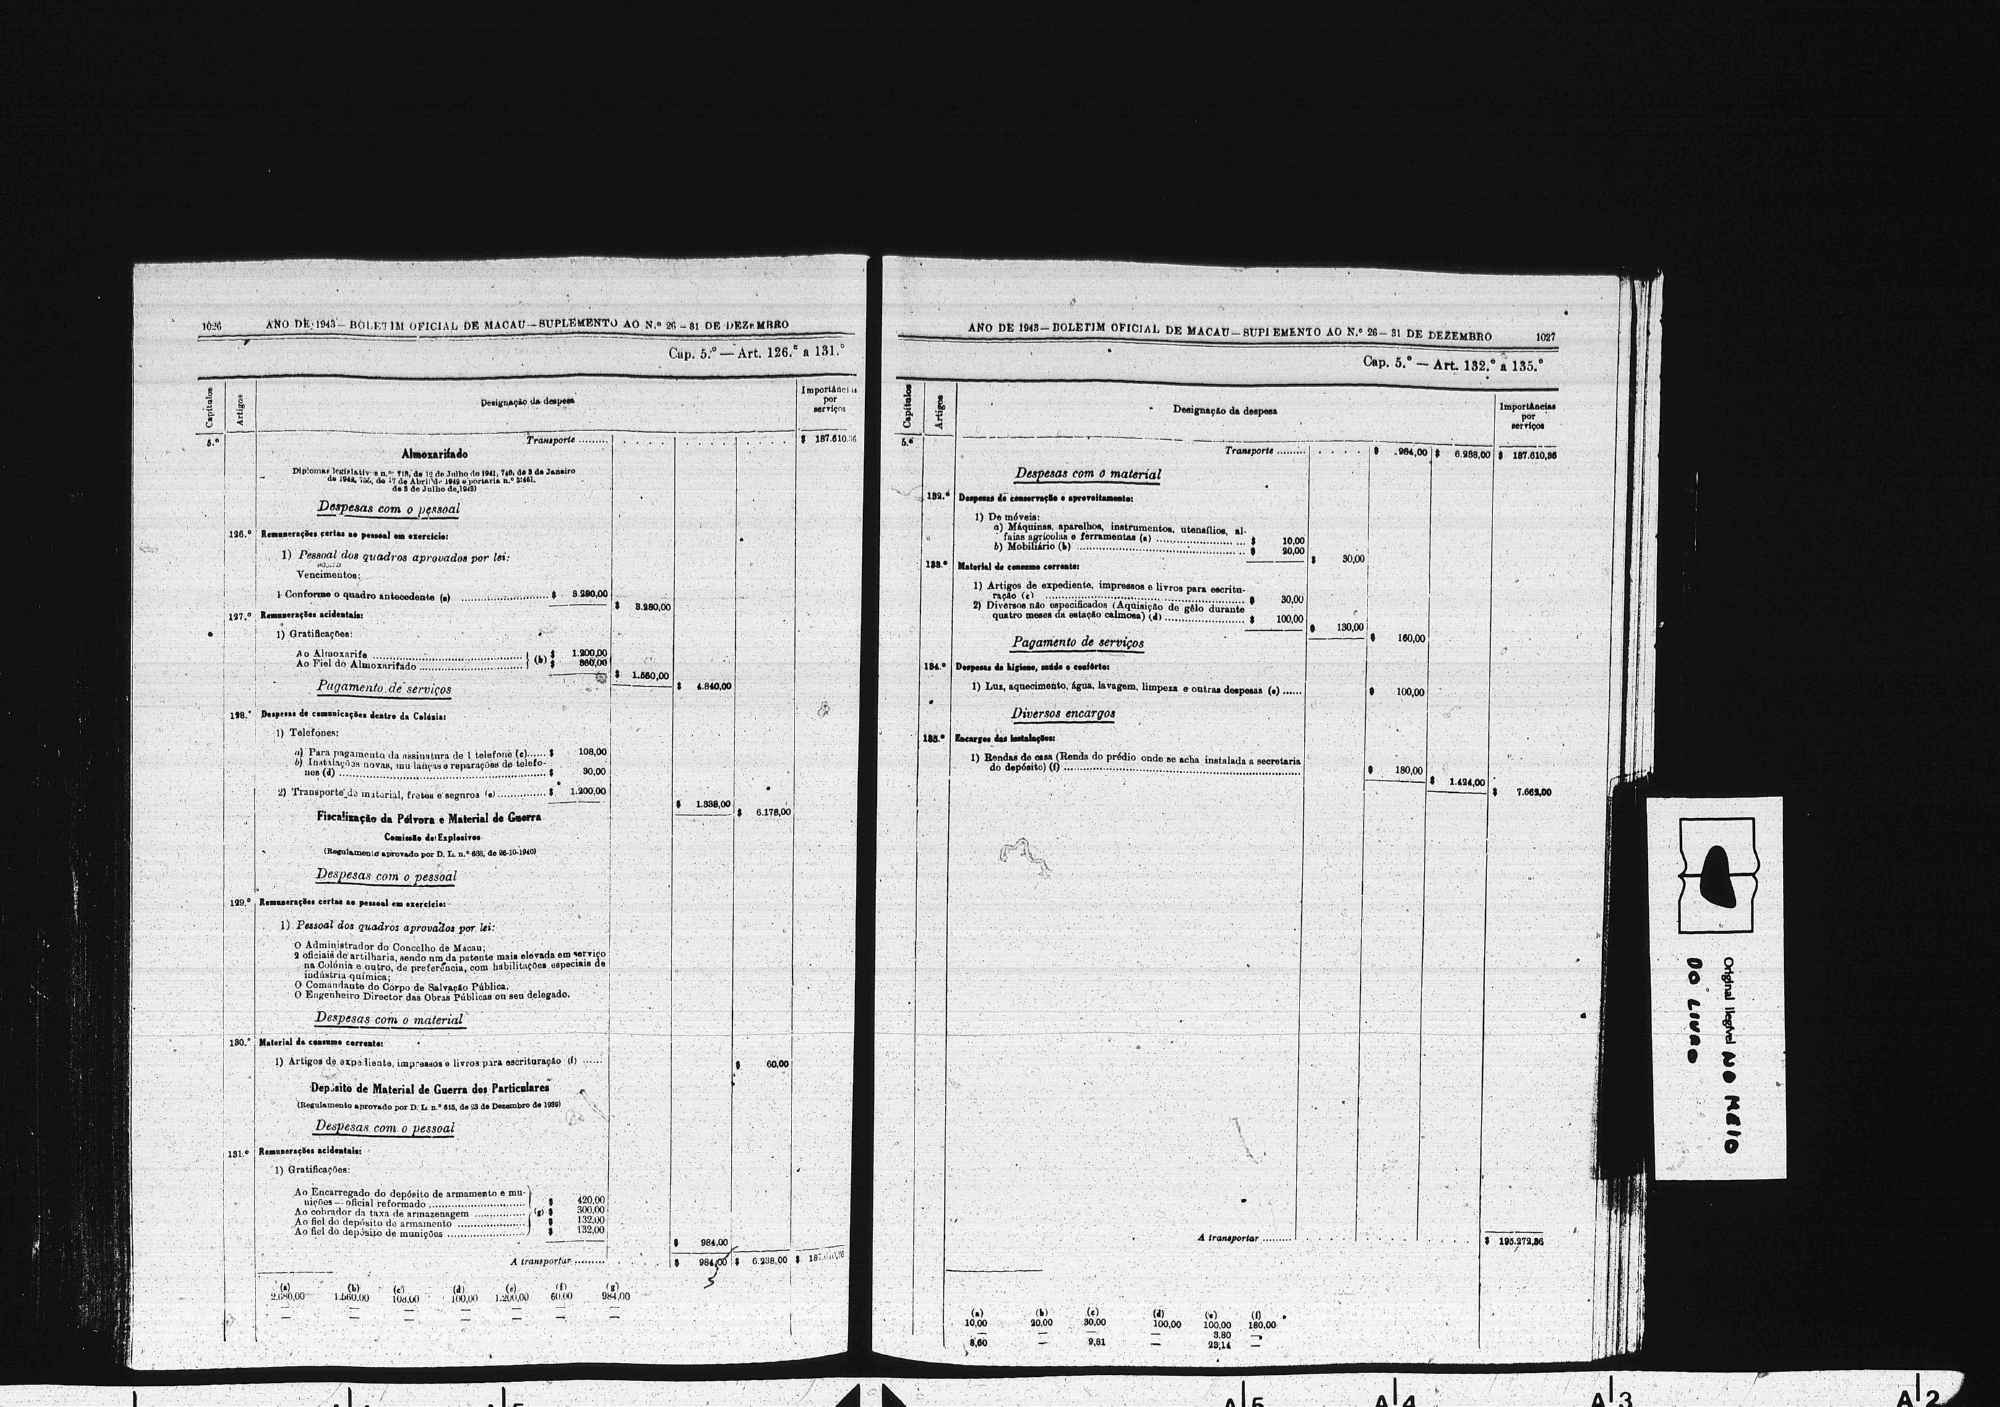 1026 ANO DE 1943 — BOLETIM OFICIAL DE MACAU — SUPLEMENTO AO N.º 26 — 31 DE DEZEMBRO
Cap. 5.º — Art. 126.º a 131.º
Capítulos
Artigos
Designação da despesa
Importâncias por serviços
5.º
Transporte ......... $ 187.610,36
Almoxarifado
Diplomas legislativos n.os 718, de 19 de Julho de 1941, 746, de 3 de Janeiro
de 1942, 755, de 17 de Abril de 1942 e portaria n.º
de 3 de Julho de 1943)
Despesas com o pessoal
126.º Remunerações certas ao pessoal em exercício:
1) Pessoal dos quadros aprovados por lei:
Vencimentos:
1 Conforme o quadro antecedente (a) .......... $ 3.280,00
$ 3.280,00
127.º Remunerações acidentais:
1) Gratificações:
Ao Almoxarife .......... $ 1.200,00
Ao Fiel do Almoxarifado .......... (b) $ 360,00
$ 1.560,00
$ 4.840,00
Pagamento de serviços
128.º Despesas de comunicações dentro da Colónia:
1) Telefones:
a) Para pagamento da assinatura de 1 telefone (c)...... $ 108,00
b) Instalações novas, mudanças e reparações de telefo-
nes (d) .......... $ 30,00
2) Transporte de material, fretes e seguros (e) .......... $ 1.200,00
$ 1.338,00
$ 6.178,00
Fiscalização da Pólvora e Material de Guerra
Comissão de Explosivos
(Regulamento aprovado por D. L. n.º 688, de 26-10-1940)
Despesas com o pessoal
129.º Remunerações certas ao pessoal em exercício:
1) Pessoal dos quadros aprovados por lei:
O Administrador do Concelho de Macau;
2 oficiais de artilharia, sendo um da patente mais elevada em serviço
na Colónia e outro, de preferência, com habilitações especiais de
indústria química;
O Comandante do Corpo de Salvação Pública.
O Engenheiro Director das Obras Públicas ou seu delegado.
Despesas com o material
130.º Material de consumo corrente:
1) Artigos de expediente, impressos e livros para escrituração (f) ......
$ 60,00
Depósito de Material de Guerra dos Particulares
(Regulamento aprovado por D. L. n.º 615, de 23 de Dezembro de 1939)
Despesas com o pessoal
131.º Remunerações acidentais:
1) Gratificações:
Ao Encarregado do depósito de armamento e mu-
nições — oficial reformado .......... $ 420,00
Ao cobrador da taxa de armazenagem .......... (g) $ 300,00
Ao fiel do depósito de armamento .......... $ 132,00
Ao fiel do depósito de munições .......... $ 132,00
$ 984,00
A transportar ......... $ 984,00 $ 6.238,00 $
(a) (b) (c) (d) (e) (f) (g)
1.560,00 108,00 100,00 1.200,00 60,00 984,00
— — — — — — —
— — — — — — —
ANO DE 1943 — BOLETIM OFICIAL DE MACAU — SUPLEMENTO AO N.º 26 — 31 DE DEZEMBRO 1027
Cap. 5.º — Art. 132.º a 135.º
Capítulos
Artigos
Designação da despesa
Importâncias por serviços
5.º
Transporte ......... $ 984,00 $ 6.238,00 $ 187.610,36
Despesas com o material
132.º Despesas de conservação e aproveitamento:
1) De móveis:
a) Máquinas, aparelhos, instrumentos, utensílios, al-
faias agrícolas e ferramentas (a) .......... $ 10,00
b) Mobiliário (b) .......... $ 20,00
$ 30,00
133.º Material de consumo corrente:
1) Artigos de expediente, impressos e livros para escritu-
ração (c) .......... $ 30,00
2) Diversos não especificados (Aquisição de gêlo durante
quatro meses da estação calmosa) (d) .......... $ 100,00
$ 130,00
$ 160,00
Pagamento de serviços
134.º Despesas de higiene, saúde e confôrto:
1) Luz, aquecimento, água, lavagem, limpeza e outras despesas (e) ......
$ 100,00
Diversos encargos
135.º Encargos das instalações:
1) Rendas de casa (Renda do prédio onde se acha instalada a secretaria
do depósito) (f) ..........
$ 180,00
$ 1.424,00
$ 7.662,00
A transportar ......... $ 195.272,36
(a) (b) (c) (d) (e) (f)
10,00 20,00 30,00 100,00 100,00 180,00
— — — — 3,80 —
8,60 — 9,81 — 23,14 —
Original Ilegível NO MEIO
DO LIVRO
A 5
A 4
A 3
A 2